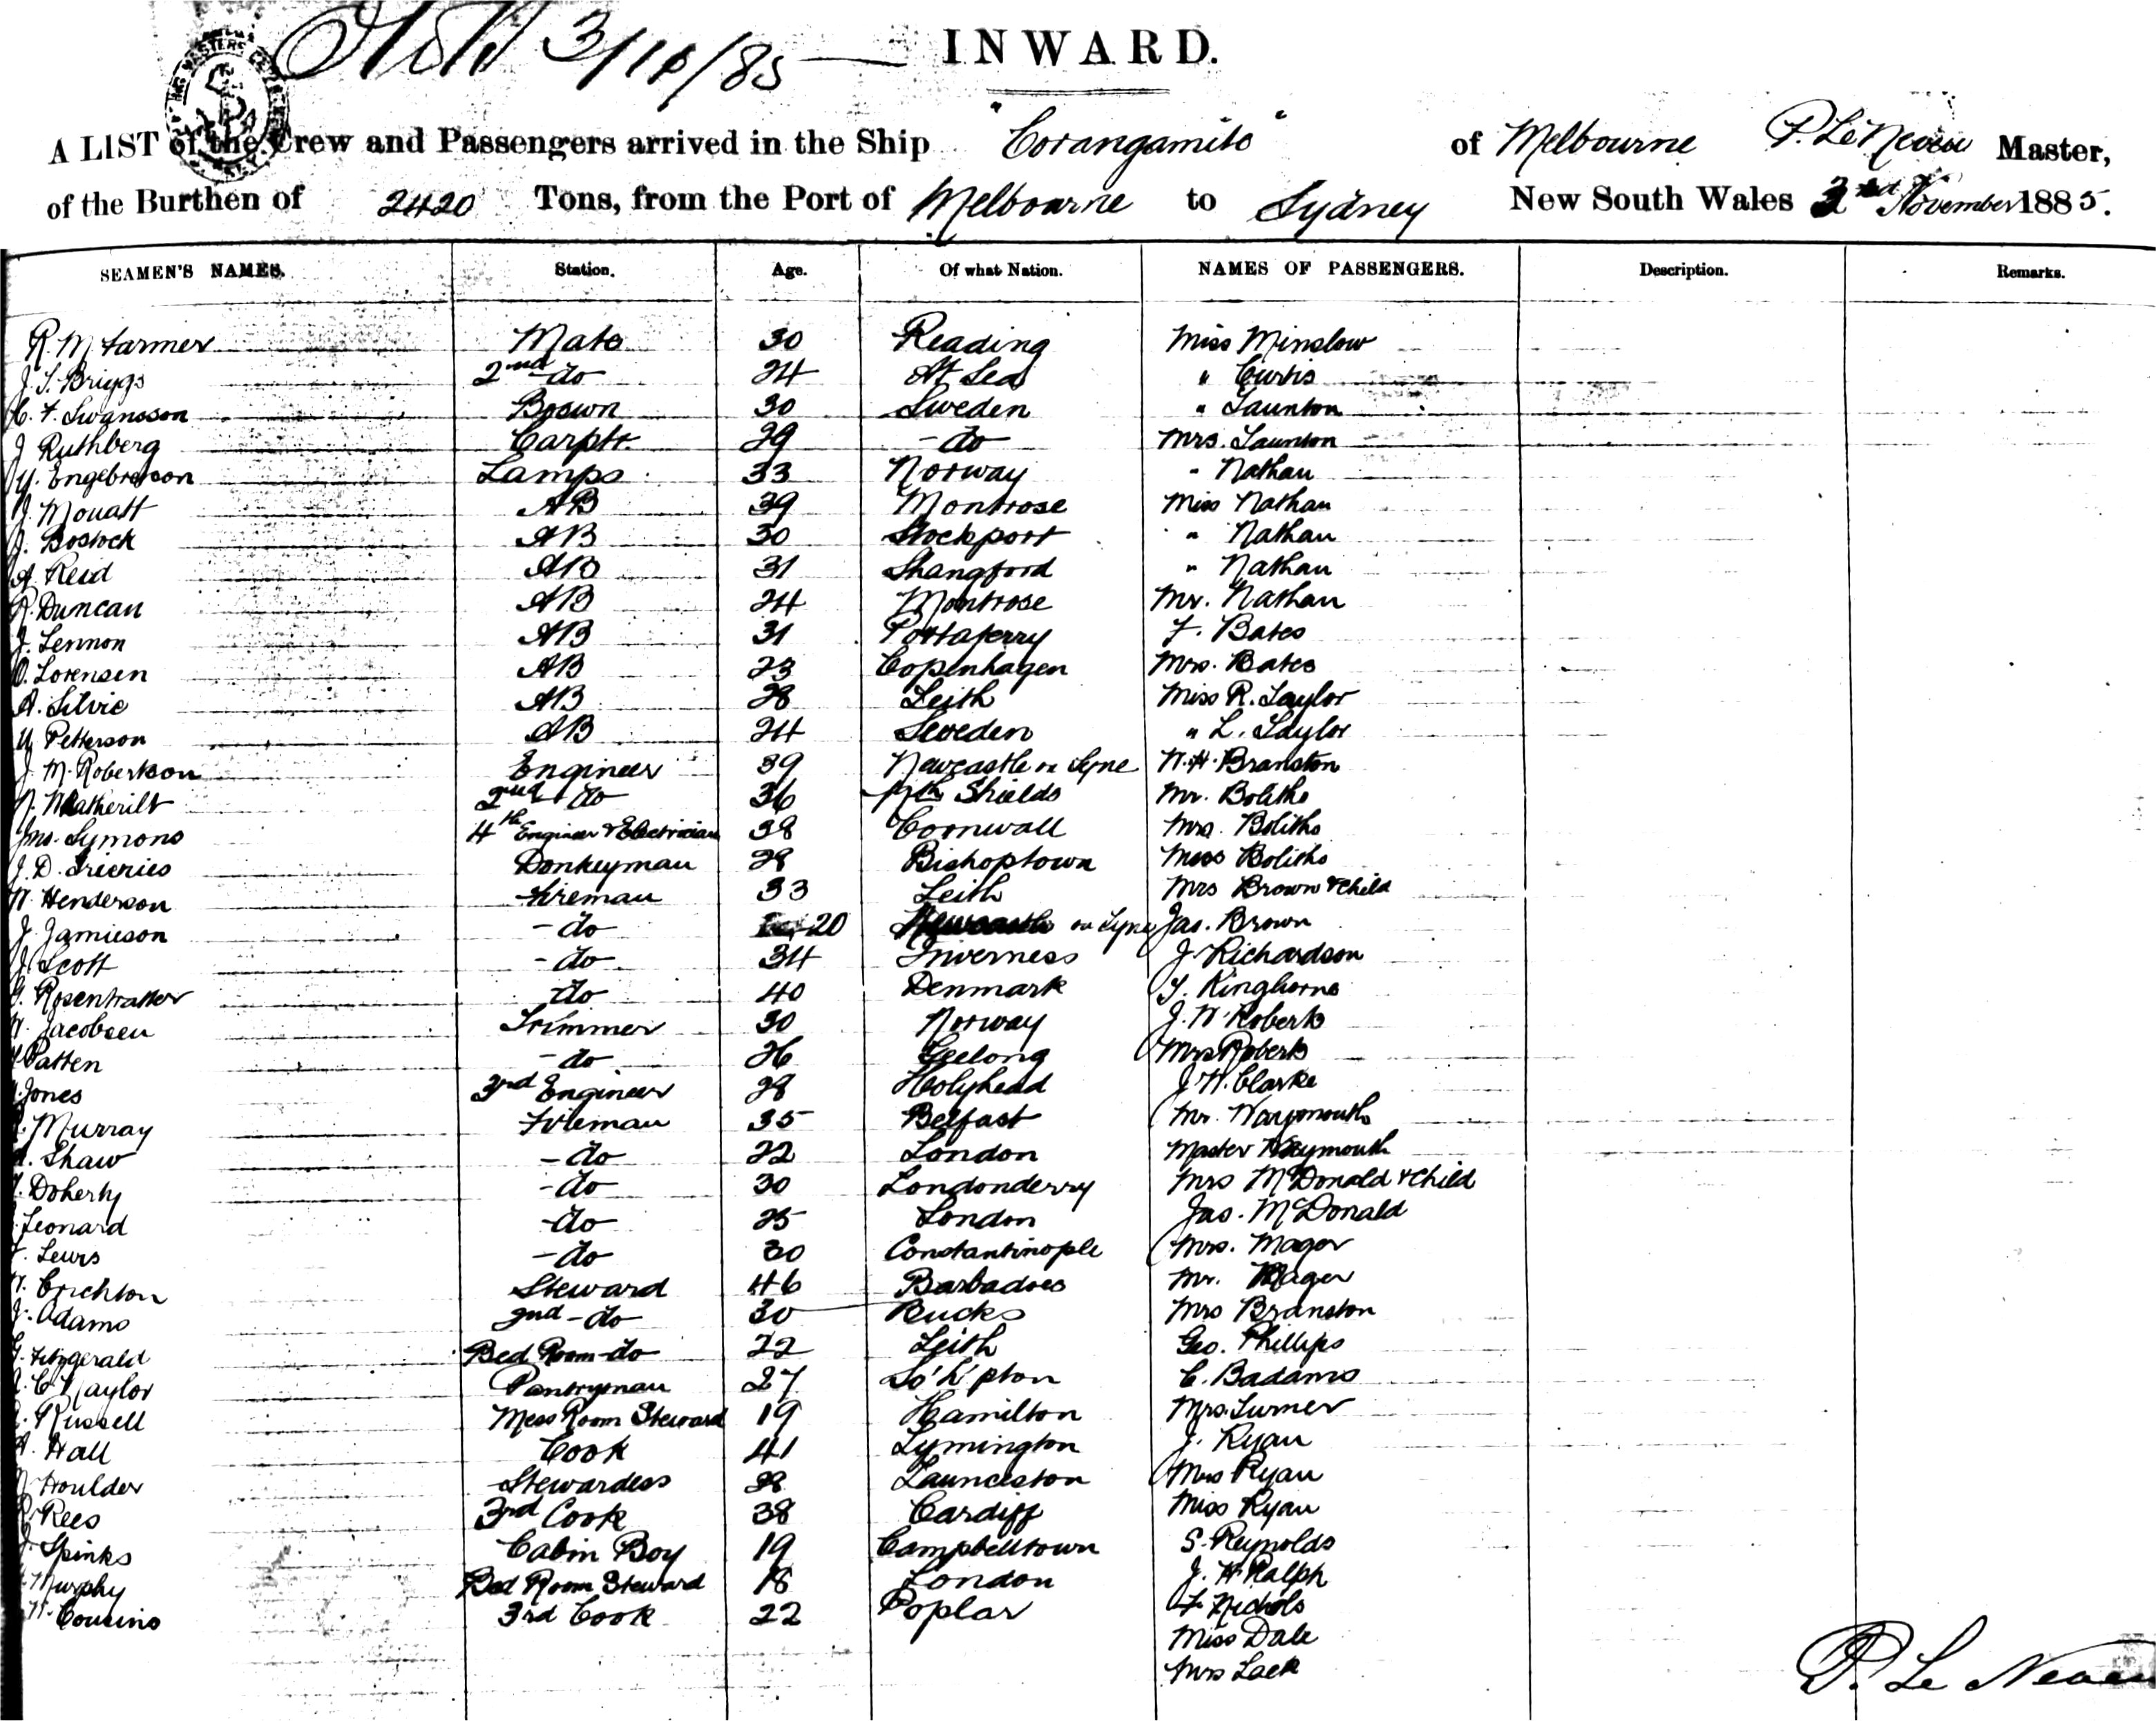 3/11/85
INWARD.
A LIST of the Crew and Passengers arrived in the Ship "Corangamite" of Melbourne P. Le Neveu Master,
of the Burthen of 2420 Tons, from the Port of Melbourne to Sydney New South Wales 3rd November 1885.
SEAMEN'S NAMES. Station. Age. Of what Nation. NAMES OF PASSENGERS. Description. Remarks.
R. M Farmer Mate 30 Reading Miss Minslow
J. S. Briggs 2nd do 24 At Sea " Curtis
C. F. Swansson Boswn 30 Sweden " Taunton
J Ruthberg Carptr. 29 - do Mrs. Taunton
Engebretson Lamps 33 Norway " Nathan
J. Mouatt AB 39 Montrose Miss Nathan
J. Bostock AB 30 Stockport " Nathan
A. Reid AB 31 Shangford " Nathan
R. Duncan AB 24 Montrose Mr. Nathan
J. Lennon AB 31 Portaferry F. Bates
O. Lorensen AB 23 Copenhagen Mrs. Bates
A. Silvie AB 28 Leith Miss R. Taylor
Petterson AB 24 Sweden " L. Taylor
J. M. Robertson Engineer 39 Newcastle on Tyne W. H. Branston
W. Weatherilt 2nd do 36 Nth Shields Mr. Bolitho
Jno. Symons 4th Engineer & Electrician 38 Cornwall Mrs. Bolitho
J. D. Frieries Donkeyman 28 Bishoptown Miss Bolitho
W. Henderson Fireman 33 Leith Mrs Brown & Child
J. Jamieson - do 20 Newcastle on Tyne Jas. Brown
J. Scott - do 34 Inverness J Richardson
Rosentratter do 40 Denmark Kinghorne
W. Jacobsen Trimmer 30 Norway J. W. Roberts
Patten - do 26 Geelong Mrs Roberts
Jones 3rd Engineer 28 Holyhead J. W. Clarke
Murray Fireman 35 Belfast Mr. Waymouth
Shaw - do 22 London Master Waymouth
Doherty - do 30 Londonderry Mrs McDonald & Child
Leonard - do 25 London Jas. McDonald
Lewis - do 30 Constantinople Mrs. Mager
Crichton Steward 46 Barbadoes Mr. Mager
J. Adams 2nd - do 30 Bucks Mrs Branston
Fitzgerald Bed Room - do 22 Leith Geo. Phillips
C Naylor Pantryman 27 So'h'pton C. Badams
Russell Mess Room Steward 19 Hamilton Mrs. Turner
Hall Cook 41 Lymington J. Ryan
Houlder Stewardess 38 Launceston Mrs Ryan
Rees 3rd Cook 38 Cardiff Miss Ryan
J. Spinks Cabin Boy 19 Campbelltown S. Reynolds
Murphy Bed Room Steward 18 London J. H. Ralph
Cousins 3rd Cook 22 Poplar F. Nichols
Miss Dale
Mrs Lack
P. Le Neveu